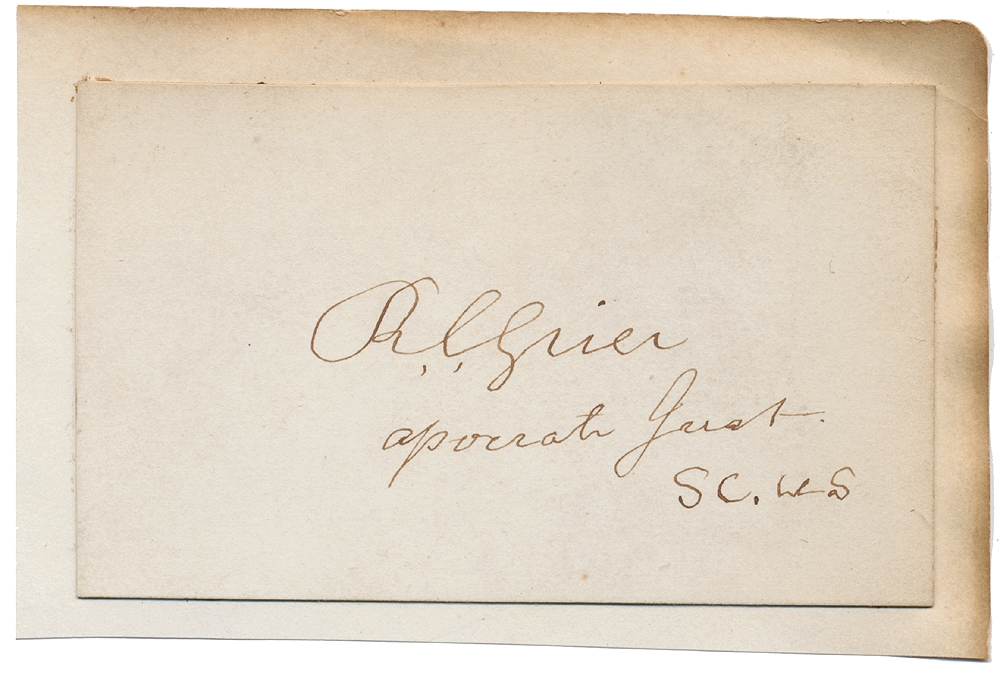 R. C. Grier
associate Just.
SC. US